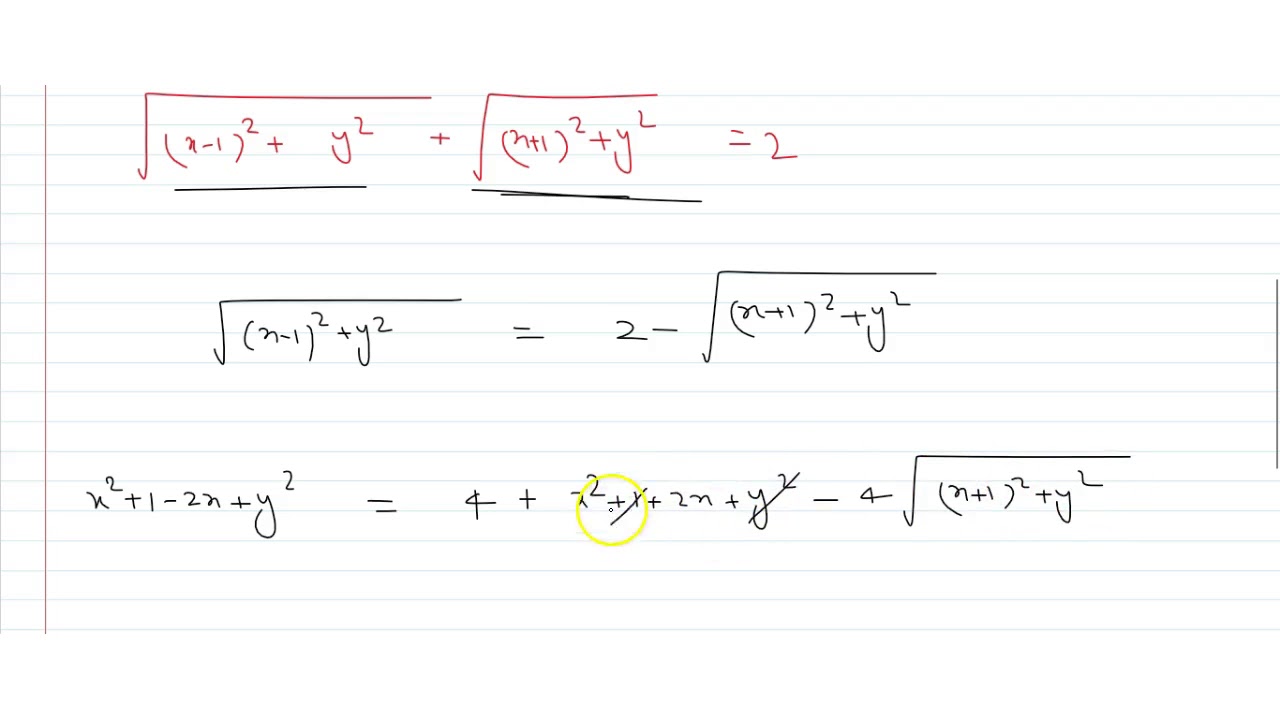 √((x-1)² + y²) + √((x+1)² + y²) = 2
√((x-1)² + y²) = 2 - √((x+1)² + y²)
x² + 1 - 2x + y² = 4 + x² + 1 + 2x + y² - 4√((x+1)² + y²)